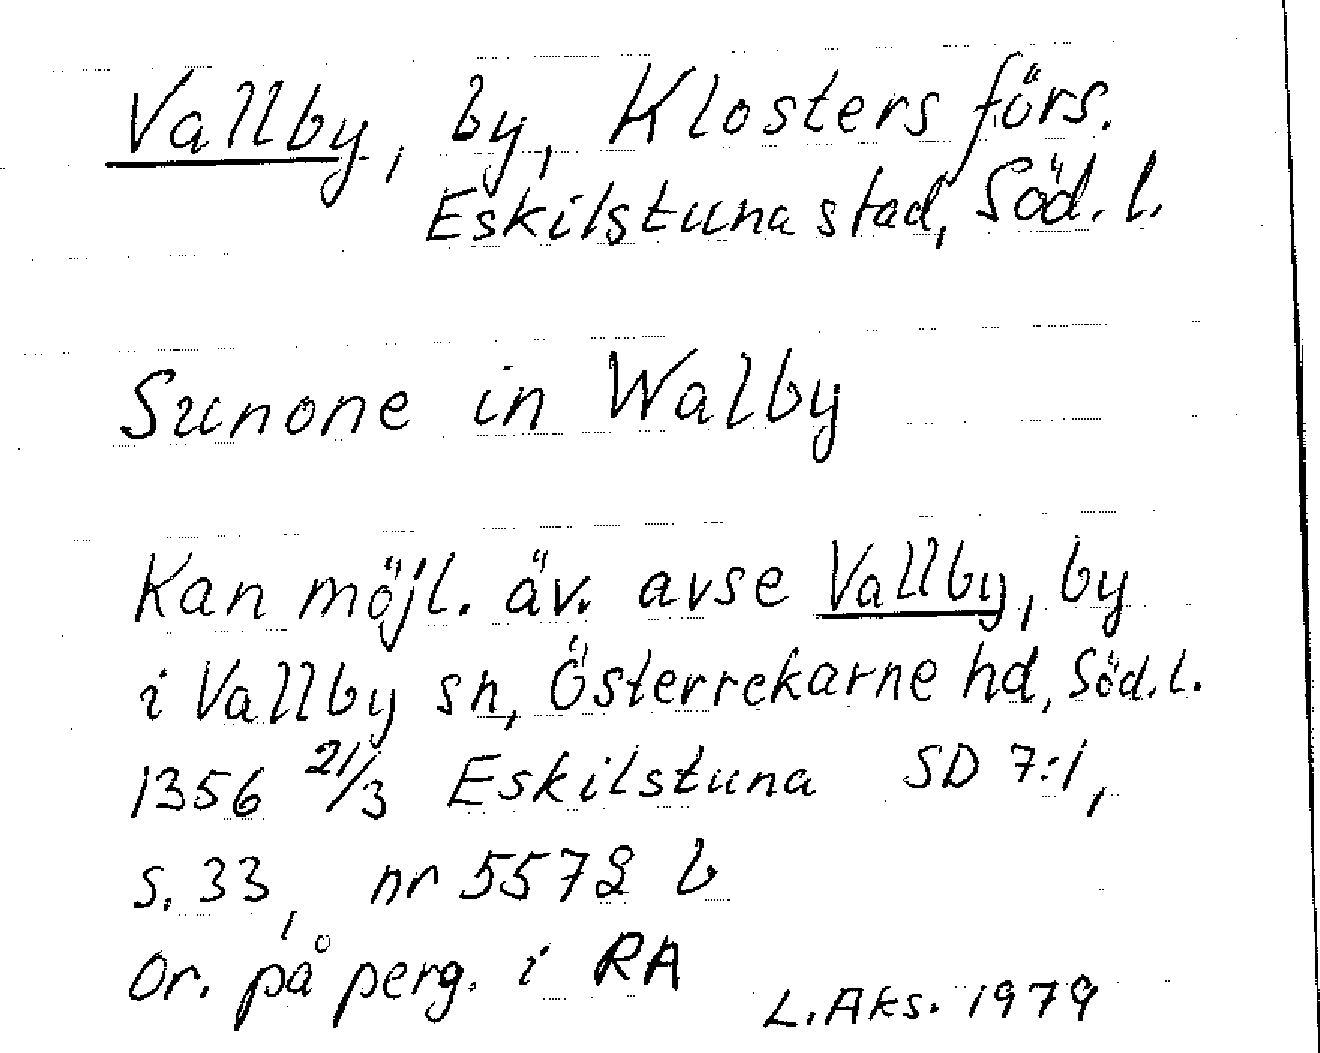 Vallby, by, Klosters förs.
Eskilstuna stad, Söd. l.
Sunone in Walby
Kan möjl. äv. avse Vallby, by
i Vallby sn, Österrekarne hd, Söd. l.
1356 21/3 Eskilstuna SD 7:1,
s. 33, nr 5572 b
Or. på perg. i RA
L. Aks. 1979